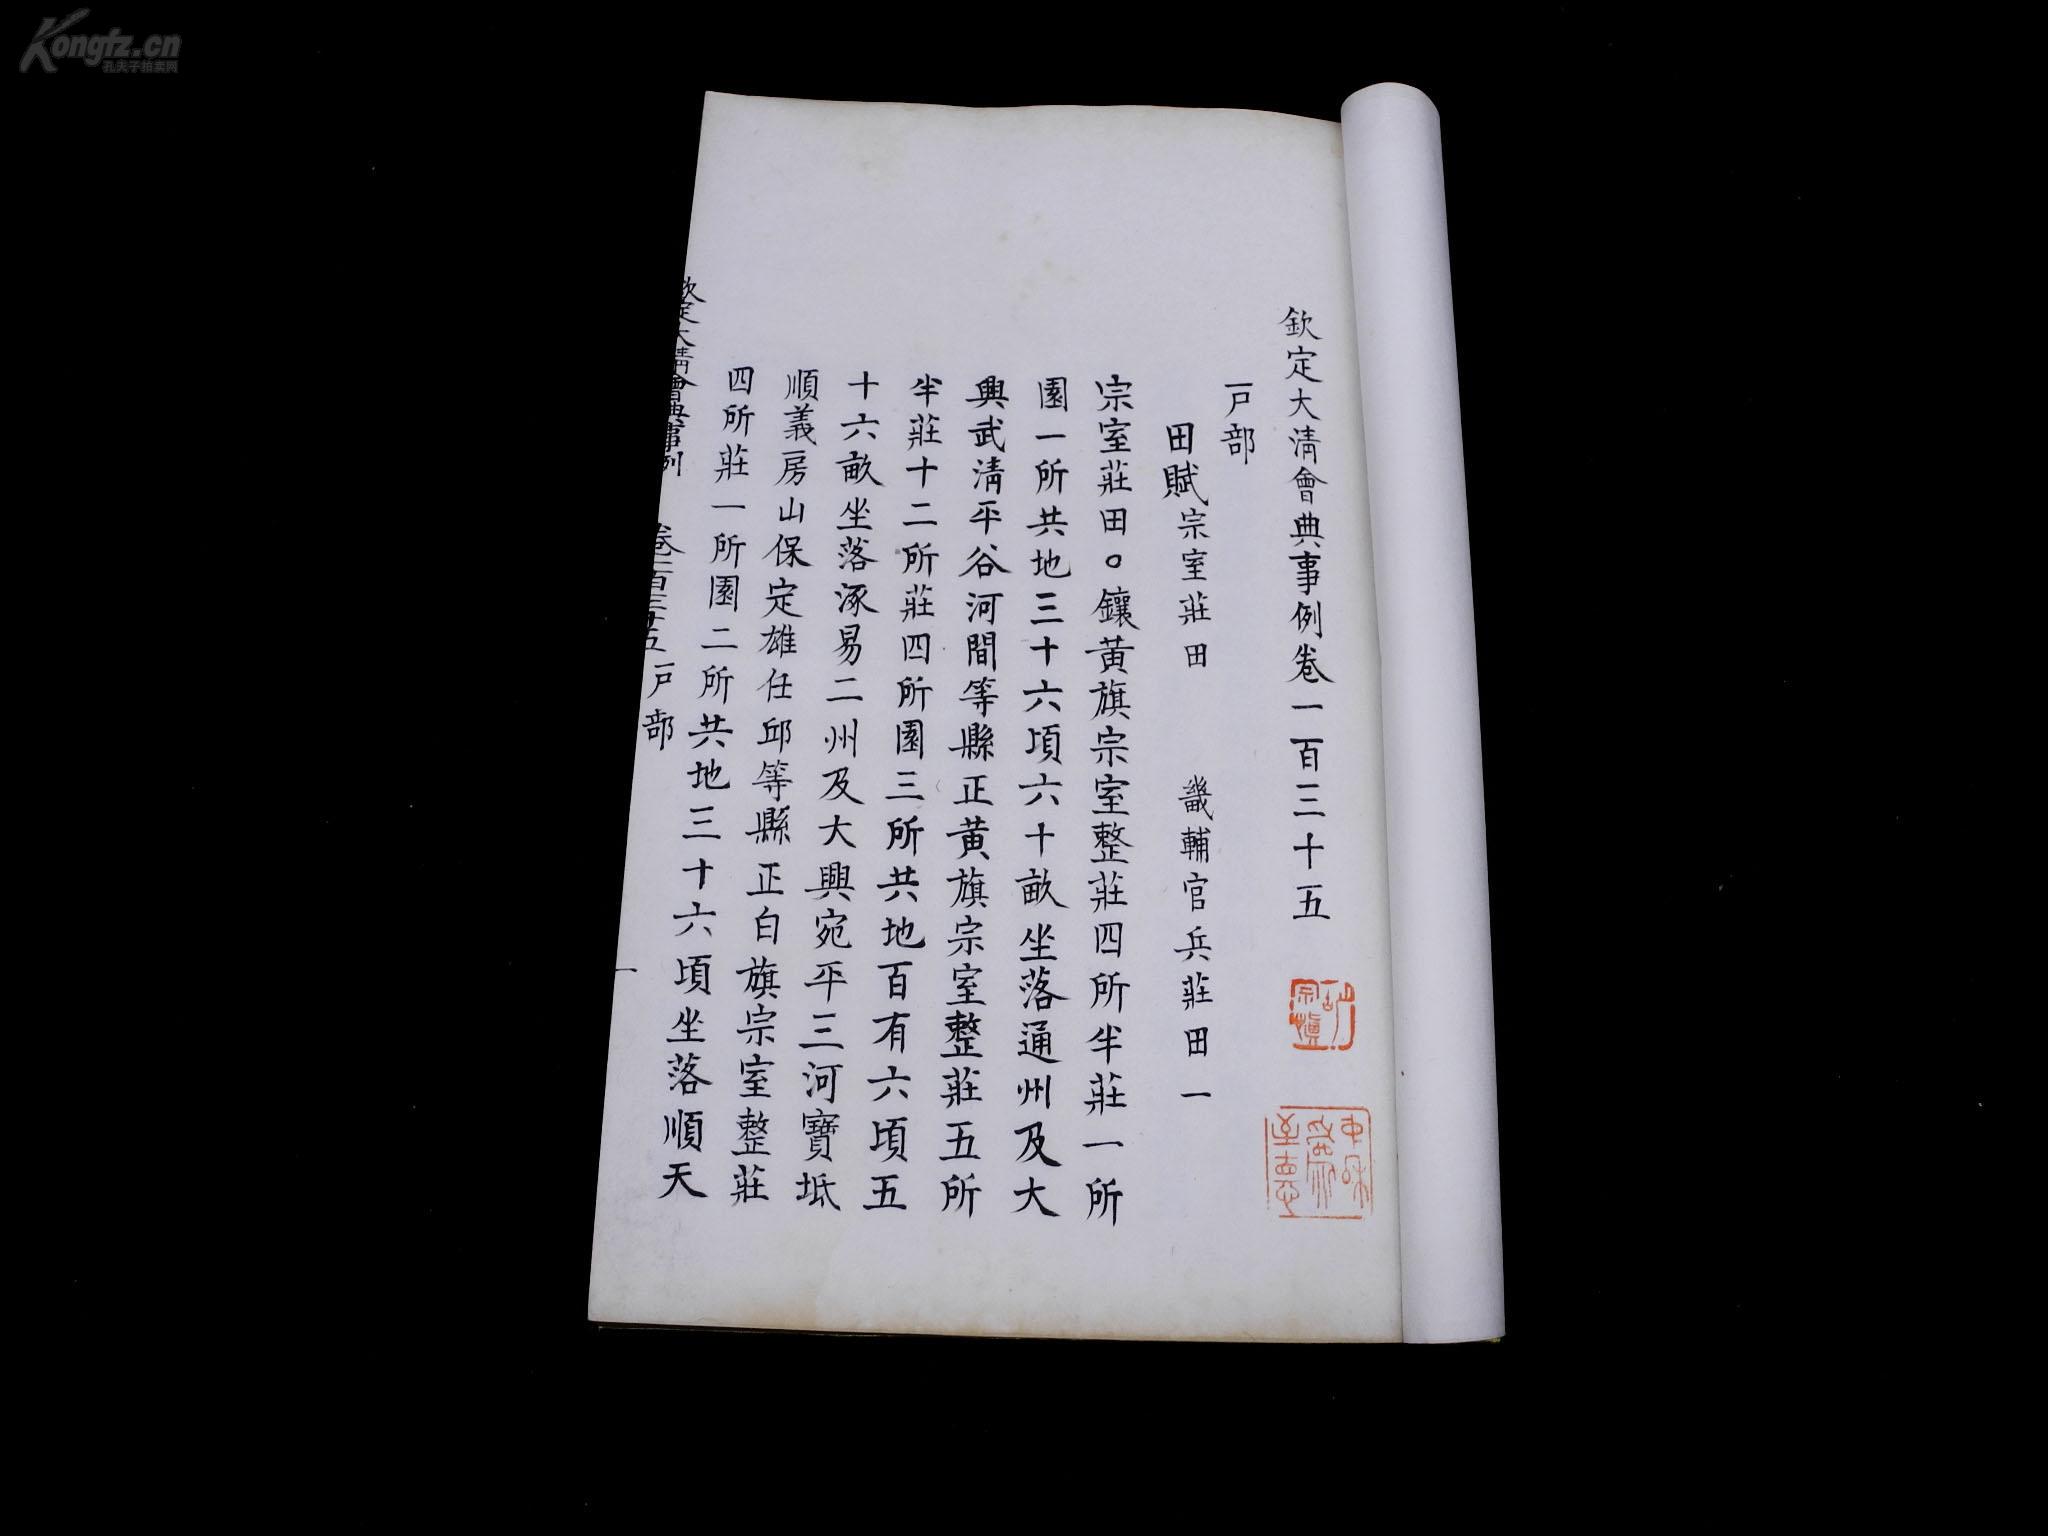 欽定大清會典事例卷一百三十五
戶部
田賦宗室莊田 畿輔官兵莊田一
宗室莊田○鑲黃旗宗室整莊四所半莊一所
園一所共地三十六頃六十畝坐落通州及大
興武清平谷河間等縣正黃旗宗室整莊五所
半莊十二所莊四所園三所共地百有六頃五
十六畝坐落涿易二州及大興宛平三河寶坻
順義房山保定雄任邱等縣正白旗宗室整莊
四所莊一所園二所共地三十六頃坐落順天
欽定大清會典事例 卷一百三十五 戶部
一
Kongfz.cn
孔夫子拍卖网